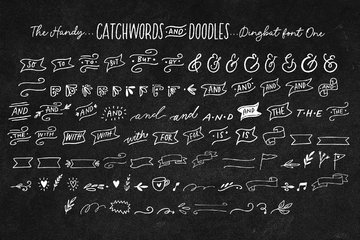 The Handy... CATCHWORDS AND DOODLES ...Dingbat font One
SO TO TO BUT BY BY & & & & & &
AND AND AND and and AND AND AND THE THE
THE WITH WITH with FOR FOR IS IS